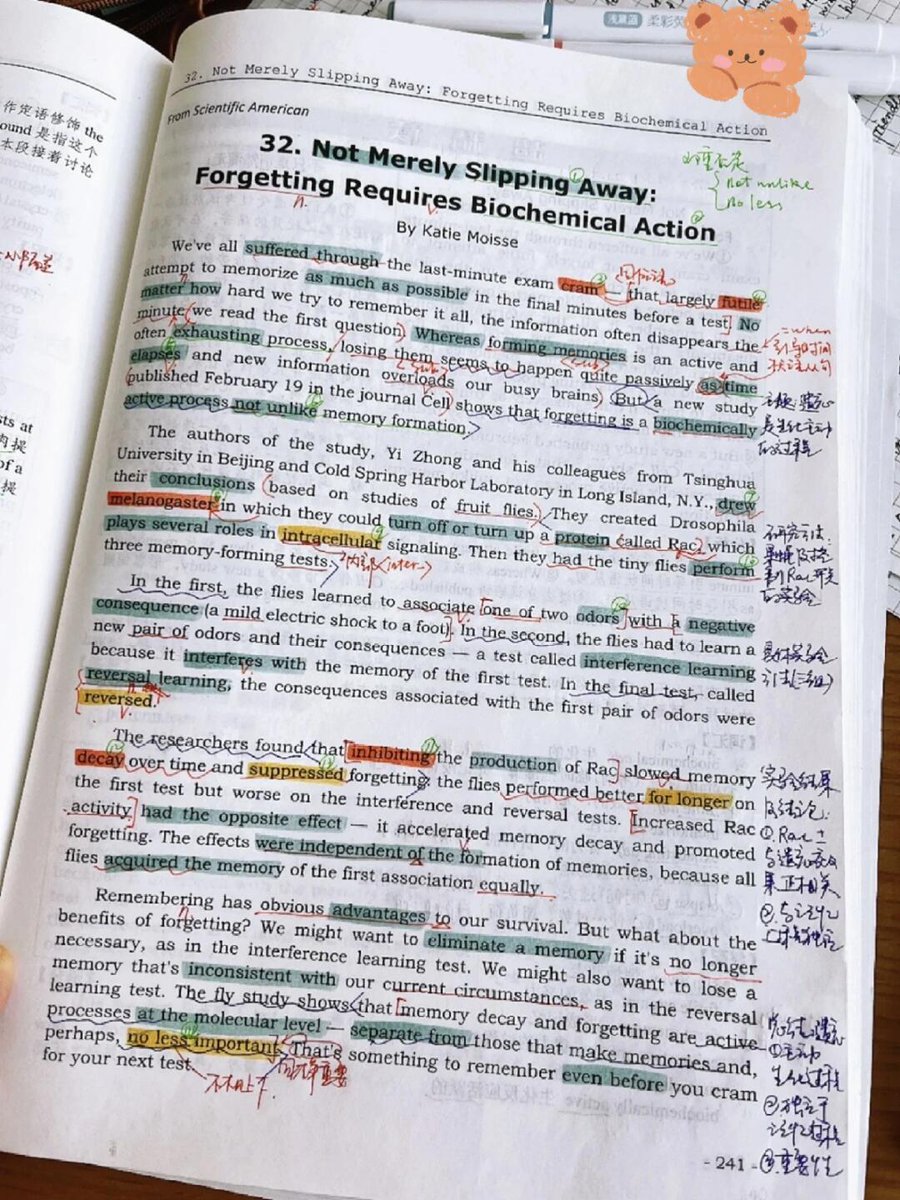 作定语修饰 the
ound 是指这个
本段接着讨论
sts at
肉提
of a
提
浅魔蓝 柔彩荧
32. Not Merely Slipping Away: Forgetting Requires Biochemical Action
From Scientific American
32. Not Merely Slipping Away:
Forgetting Requires Biochemical Action
By Katie Moisse
双重否定
not unlike
no less
n.
v.
We've all suffered through the last-minute exam cram — that largely futile
attempt to memorize as much as possible in the final minutes before a test. No
matter how hard we try to remember it all, the information often disappears the
minute we read the first question. Whereas forming memories is an active and
often exhausting process, losing them seems to happen quite passively as time
elapses and new information overloads our busy brains. But a new study
(published February 19 in the journal Cell) shows that forgetting is a biochemically
active process not unlike memory formation.
=when
引导时间
状语从句
The authors of the study, Yi Zhong and his colleagues from Tsinghua
University in Beijing and Cold Spring Harbor Laboratory in Long Island, N.Y., drew
their conclusions based on studies of fruit flies. They created Drosophila
melanogaster in which they could turn off or turn up a protein called Rac, which
plays several roles in intracellular signaling. Then they had the tiny flies perform
three memory-forming tests.
In the first, the flies learned to associate one of two odors with a negative
consequence (a mild electric shock to a foot). In the second, the flies had to learn a
new pair of odors and their consequences — a test called interference learning
because it interferes with the memory of the first test. In the final test, called
reversal learning, the consequences associated with the first pair of odors were
reversed.
The researchers found that inhibiting the production of Rac slowed memory
decay over time and suppressed forgetting; the flies performed better for longer on
the first test but worse on the interference and reversal tests. Increased Rac
activity had the opposite effect — it accelerated memory decay and promoted
forgetting. The effects were independent of the formation of memories, because all
flies acquired the memory of the first association equally.
实验结果
及结论:
① Rac 与
遗忘效
果正相关
Remembering has obvious advantages to our survival. But what about the
benefits of forgetting? We might want to eliminate a memory if it's no longer
necessary, as in the interference learning test. We might also want to lose a
memory that's inconsistent with our current circumstances, as in the reversal
learning test. The fly study shows that memory decay and forgetting are active
processes at the molecular level — separate from those that make memories and,
perhaps, no less important. That's something to remember even before you cram
for your next test.
不不止于
同样重要
①主动
生化过程
②独立于
记忆过程
③重要性
biochemically active 生化反应活跃的
- 241 -